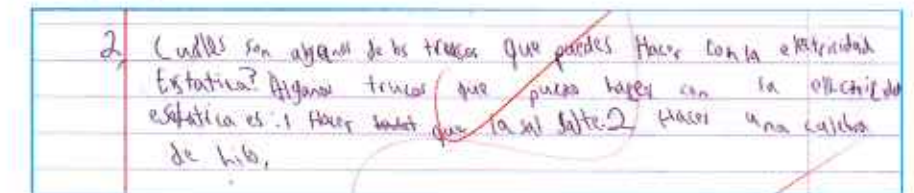 2, Cuáles son algunos de los trucos que puedes Hacer con la electricidad
Estatica? Algunos trucos que puedo hacer con la electricidad
esatatica es .1 Hacer que la sal salte. 2 Hacer una culebra
de hilo,